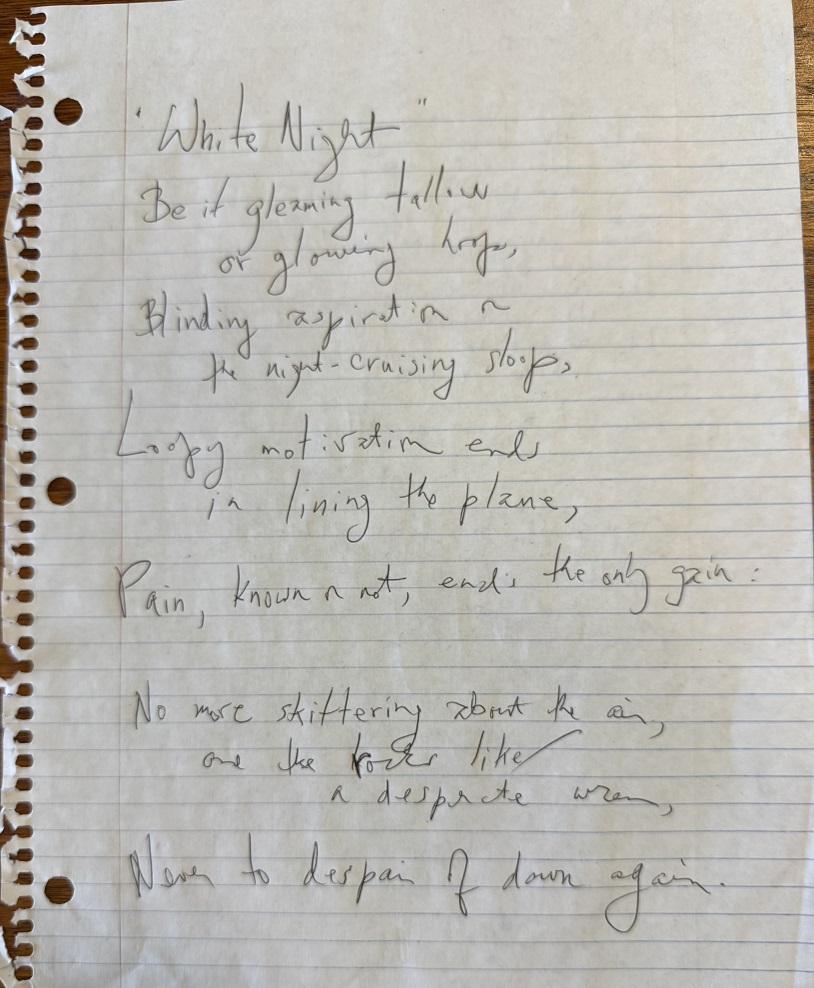 "White Night"
Be it gleaming tallow
or glowing hoops,
Blinding aspiration or
the night-cruising sloops,
Loopy motivation ends
in lining the plane,
Pain, known or not, ends the only gain:
No more skittering about the air,
one the like
a desperate wren,
Never to despair of dawn again.